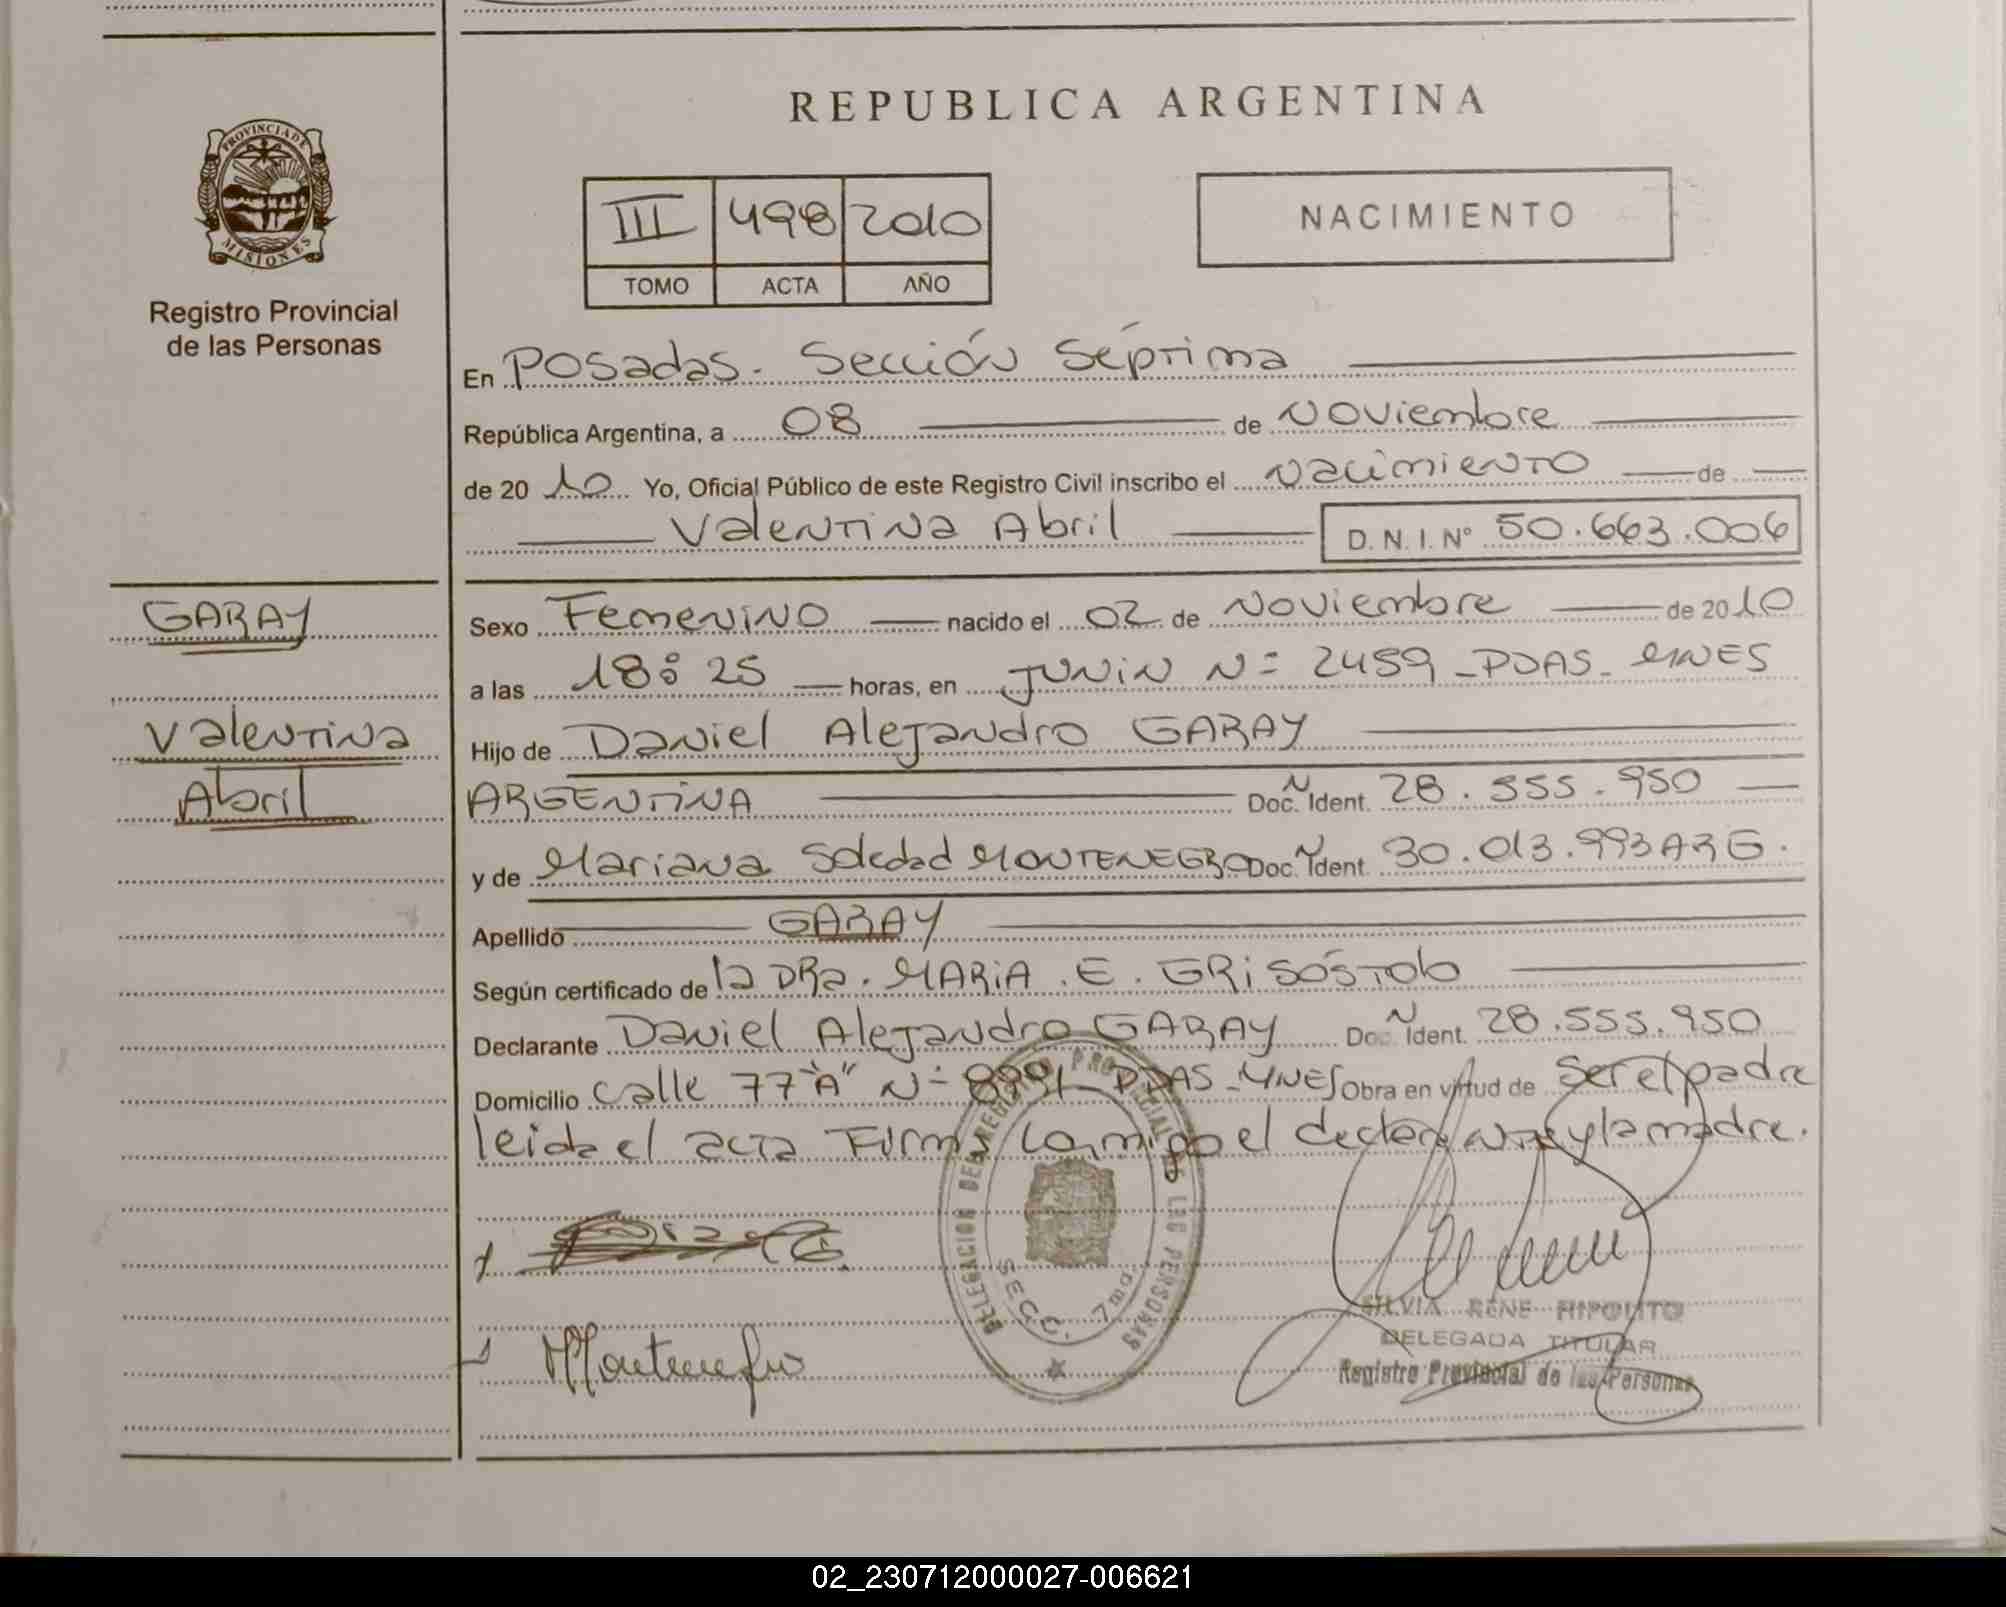 REPUBLICA ARGENTINA
PROVINCIA DE
MISIONES
Registro Provincial
de las Personas
III 498 2010
TOMO ACTA AÑO
NACIMIENTO
En Posadas. Sección Séptima
República Argentina, a 08 de Noviembre
de 2010 Yo, Oficial Público de este Registro Civil inscribo el Nacimiento de
Valentina Abril D.N.I. Nº 50.663.006
GARAY
Valentina
Abril
Sexo Femenino nacido el 02 de Noviembre de 2010
a las 18:25 horas, en JUNIN Nº 2459 - PDAS - MNES
Hijo de Daniel Alejandro GARAY
ARGENTINA Doc. Ident. 28.555.950
y de Mariana Soledad MONTENEGRO Doc. Ident. 30.013.993 ARG.
Apellido GARAY
Según certificado de la DRa. MARIA. E. GRISÓSTOLO
Declarante Daniel Alejandro GARAY Doc. Ident. 28.555.950
Domicilio calle 77 "A" Nº 8891 - PDAS - MNES Obra en virtud de ser el padre
leida el acta Firma conmigo el declarante y la madre.
DELEGACION DEL REGISTRO PROVINCIAL DE LAS PERSONAS
SECC. 7ma.
Montenegro
SILVIA RENE HIPOLITO
DELEGADA TITULAR
Registro Provincial de las Personas
02_230712000027-006621